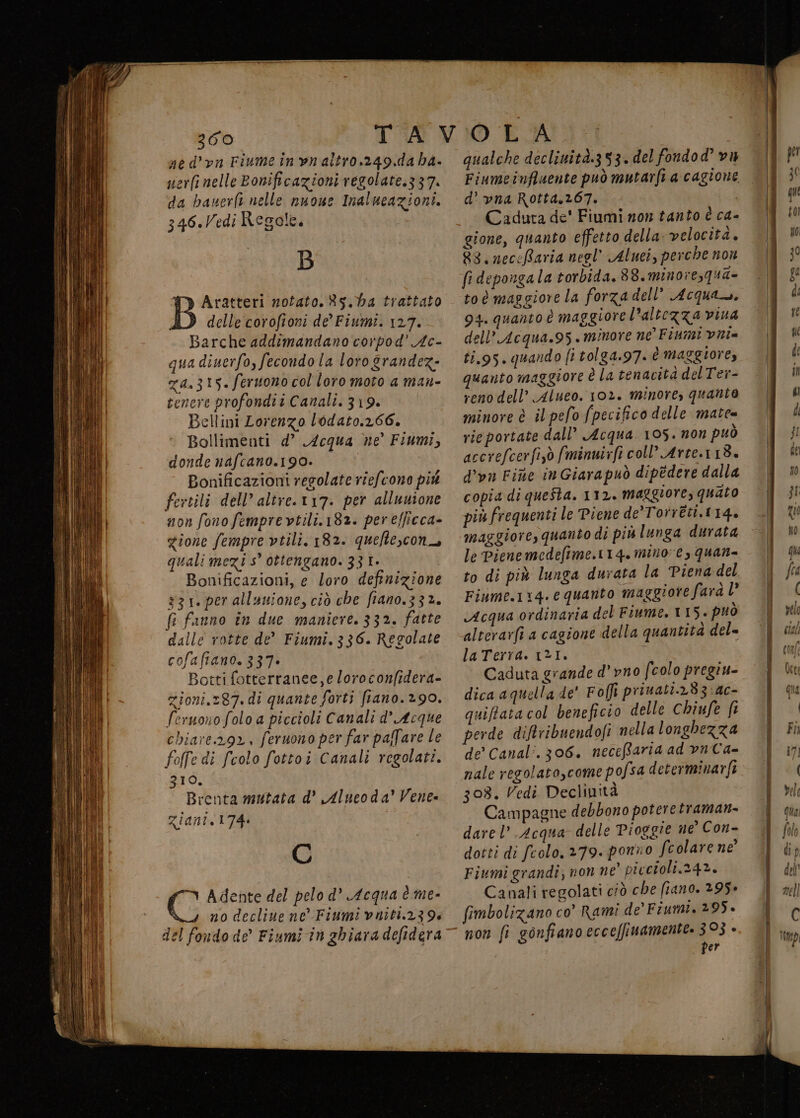 360 TAVOLA
ne d'vn Fiume in vn altro.249.da ha-
uerſi nelle Bonificazioni regolate.337.
da hauerſi nelle nuoue Inalueazioni.
346.Vedi Regole.
B
BAratteri notato.85.ha trattato
delle coroſioni de' Fiumi. 127.
Barche addimandano corpo d' Ac-
qua diuerſo, ſecondo la loro grandez-
za.315. ſeruono col loro moto a man-
tenere profondi i Canali. 319.
Bellini Lorenzo lodato.266.
Bollimenti d' Acqua ne' Fiumi,
donde naſcano.190.
Bonificazioni regolate rieſcono più
fertili dell' altre.117. per alluuione
non ſono ſempre vtili.182. per eſſicca-
zione ſempre vtili. 182. queſte, con
quali mezi s' ottengano. 331.
Bonificazioni, e loro definizione
331. per alluuione, ciò che ſiano.332.
ſi fanno in due maniere. 332. fatte
dalle rotte de' Fiumi.336. Regolate
coſa ſiano. 337.
Botti ſotterranee, e loro conſidera-
zioni.287. di quante ſorti ſiano. 290.
ſeruono ſolo a piccioli Canali d'Acque
chiare.292, ſeruono per far paſſare le
foſſe di ſcolo ſotto i Canali regolati.
310.
Brenta mutata d' Alueo da' Vene-
ziani. 174.
C
CAdente del pelo d' Acqua è me-
no decliue ne' Fiumi vniti.239.
del fondo de' Fiumi in ghiara deſidera
qualche decliuità.353. del fondo d' vn
Fiume influente può mutarſi a cagione
d' vna Rotta.267.
Caduta de' Fiumi non tanto è ca-
gione, quanto effetto della velocità.
83. neceſſaria negl' Aluei, perche non
ſi deponga la torbida. 88. minore, quā-
to è maggiore la forza dell' Acqua.
94. quanto è maggiore l'altezza viua
dell' Acqua.95. minore ne' Fiumi vni-
ti.95. quando ſi tolga.97. è maggiore,
quanto maggiore è la tenacità del Ter-
reno dell' Alueo. 102. minore, quanto
minore è il peſo ſpecifico delle mate-
rie portate dall' Acqua 105. non può
accreſcerſi, ò ſminuirſi coll' Arte.118.
d'vn Fiūe in Giara può dipēdere dalla
copia di queſta. 112. maggiore, quāto
più frequenti le Piene de' Torrēti.114.
maggiore, quanto di più lunga durata
le Piene medeſime.114. mino e, quan-
to di più lunga durata la Piena del
Fiume.114. e quanto maggiore ſarà l'
Acqua ordinaria del Fiume. 115. può
alterarſi a cagione della quantità del-
la Terra. 121.
Caduta grande d' vno ſcolo pregiu-
dica a quella de' Foſſi priuati.283. ac-
quiſtata col beneficio delle Chiuſe ſi
perde diſtribuendoſi nella longhezza
de' Canali. 306. neceſſaria ad vn Ca-
nale regolato, come poſsa determinarſi
308. Vedi Decliuità
Campagne debbono potere traman-
dare l' Acqua delle Pioggie ne' Con-
dotti di ſcolo. 279. ponno ſcolare ne'
Fiumi grandi, non ne' piccioli.242.
Canali regolati ciò che ſiano. 295.
ſimbolizano co' Rami de' Fiumi. 295.
non ſi gonfiano ecceſſiuamente. 303.
per